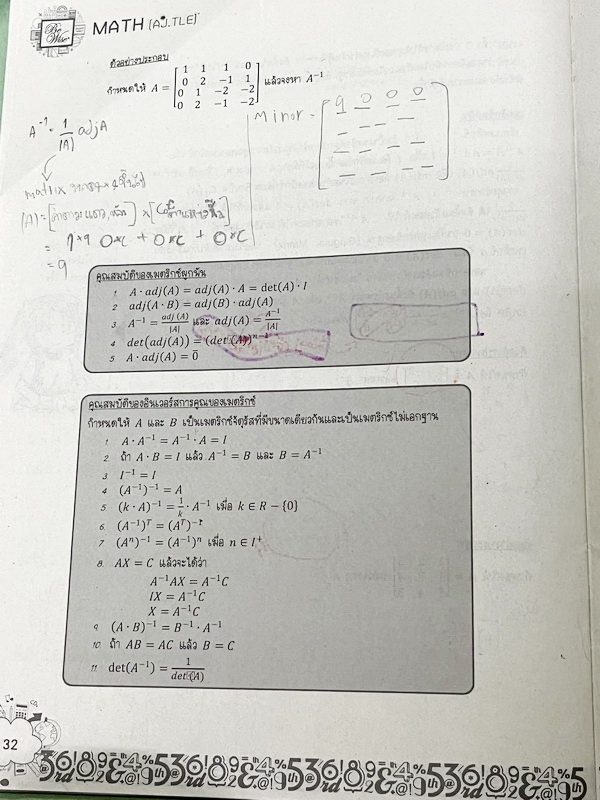 Be Wise
MATH (AJ.TLE)
ตัวอย่างประกอบ
กำหนดให้ A = [1 1 1 0
0 2 -1 1
0 1 -2 -2
0 2 -1 -2] แล้วจงหา A⁻¹
A⁻¹ = 1/|A| adjA
Minor = [9 0 0 0
matrix
|A| =
= 1×9 0×C + 0×C + 0×C
= 9
คุณสมบัติของเมตริกซ์ผูกพัน
1. A · adj(A) = adj(A) · A = det(A) · I
2. adj(A · B) = adj(B) · adj(A)
3. A⁻¹ = adj(A)/|A| และ adj(A) = A⁻¹/|A|
4. det(adj(A)) = (det(A))ⁿ⁻¹
5. A · adj(A) = 0̄
คุณสมบัติของอินเวอร์สการคูณของเมตริกซ์
กำหนดให้ A และ B เป็นเมตริกซ์จัตุรัสที่มีขนาดเดียวกันและเป็นเมตริกซ์ไม่เอกฐาน
1. A · A⁻¹ = A⁻¹ · A = I
2. ถ้า A · B = I แล้ว A⁻¹ = B และ B = A⁻¹
3. I⁻¹ = I
4. (A⁻¹)⁻¹ = A
5. (k · A)⁻¹ = 1/k · A⁻¹ เมื่อ k ∈ R − {0}
6. (A⁻¹)ᵀ = (Aᵀ)⁻¹
7. (Aⁿ)⁻¹ = (A⁻¹)ⁿ เมื่อ n ∈ I⁺
8. AX = C แล้วจะได้ว่า
A⁻¹AX = A⁻¹C
IX = A⁻¹C
X = A⁻¹C
9. (A · B)⁻¹ = B⁻¹ · A⁻¹
10. ถ้า AB = AC แล้ว B = C
11. det(A⁻¹) = 1/det(A)
32